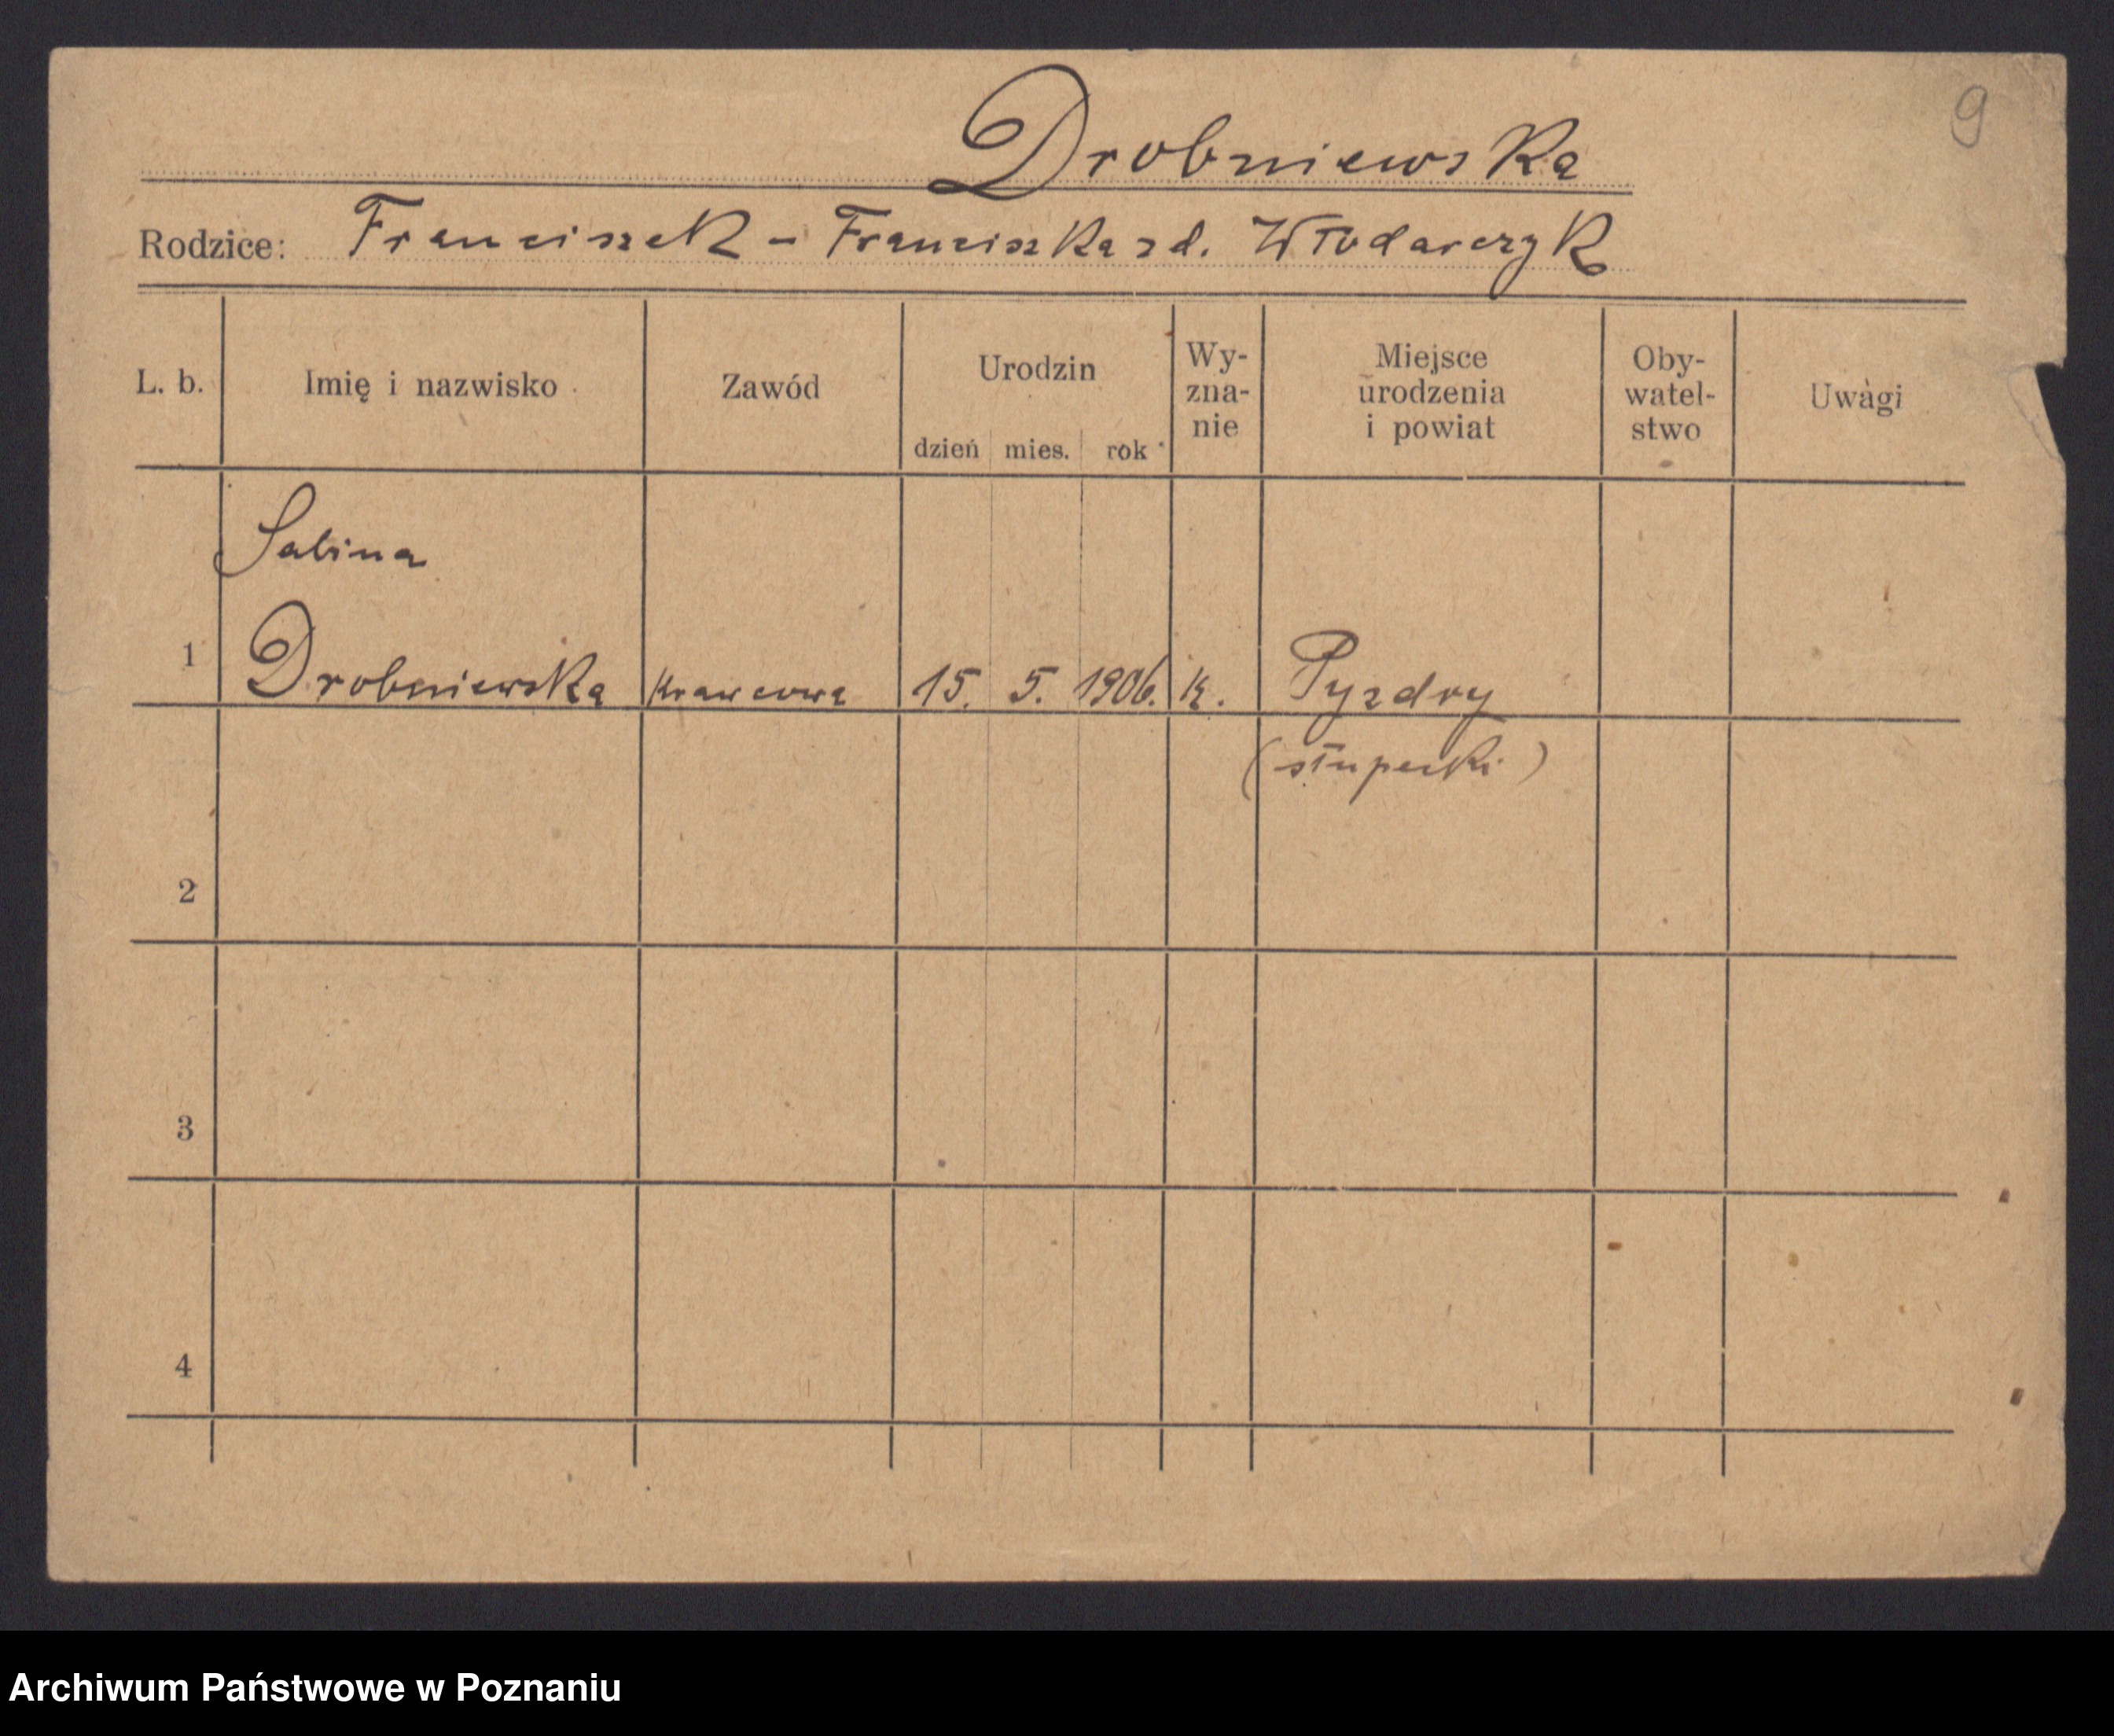 9
Drobniewska
Rodzice: Franciszek - Franciszka zd. Włodarczyk
L. b.
Imię i nazwisko
Zawód
Urodzin
dzień mies. rok
Wy-
zna-
nie
Miejsce
urodzenia
i powiat
Oby-
watel-
stwo
Uwagi
Sabina
1 Drobniewska krawcowa 15. 5. 1906. k. Pyzdry
(słupecki)
2
3
4
Archiwum Państwowe w Poznaniu